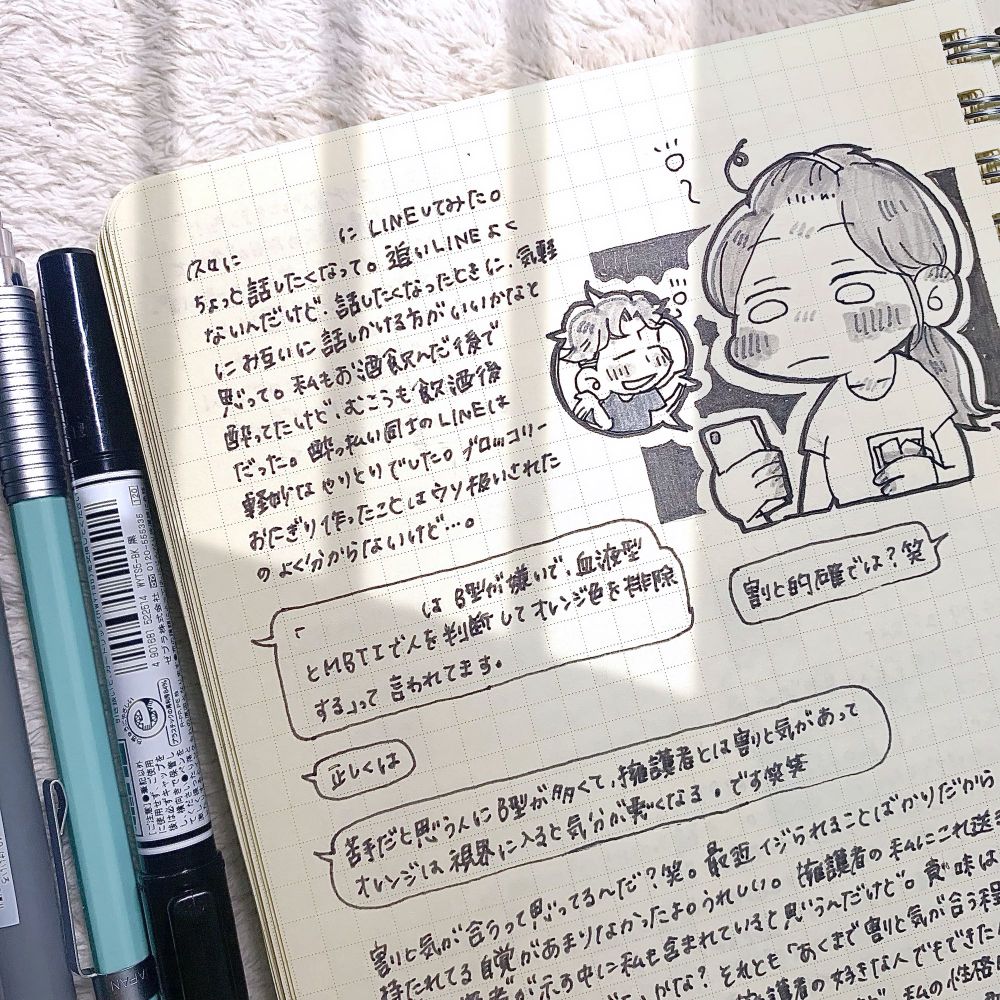 久々に に LINEしてみた。
ちょっと話したくなって。追いLINEよく
ないんだけど、話したくなったときに、気軽
にお互いに話しかける方がいいかなと
思って。私もお酒飲んだ後で
酔ってたけど、むこうも飲酒後
だった。酔っ払い同士のLINEは
軽妙なやりとりでした。ブロッコリー
おにぎり作ったことはウソ扱いされた
のよく分からないけど…。
「 は B型が嫌いで、血液型
とMBTIで人を判断してオレンジ色を排除
する」って言われてます。
割と的確では?笑
正しくは
苦手だと思う人にB型が多くて、擁護者とは割と気があって
オレンジは視界に入ると気分が悪くなる。です笑笑
割と気が合うって思ってるんだ?笑。最近イジられることばかりだから
持たれてる自覚があまりなかったよ。うれしい。擁護者の私にこれ送
が示す中に私も含まれていると思うんだけど。意味は
かな?それとも「あくまで割と気が合う程
擁護者の好きな人でもできた
私の性格
4 901681 522514
WYTS5-BK 黒
0120-555335
ゼブラ株式会社
プラスチック
(ご注意)●筆記以外
に使用せず、ご使用
後は必ずキャップを